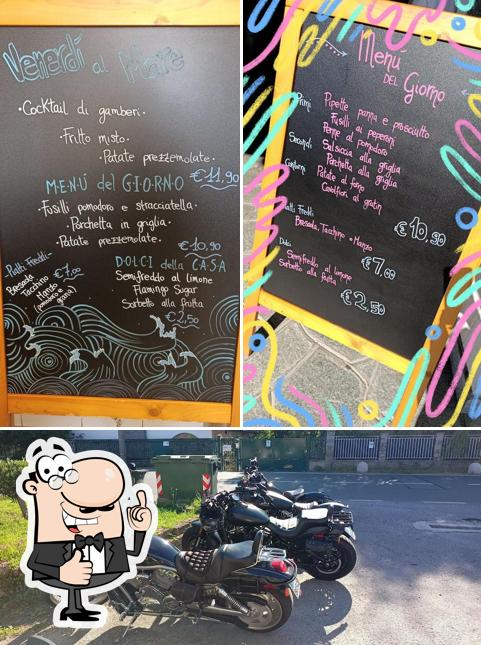 Venerdì al Mare
• Cocktail di gamberi •
• Fritto misto •
• Patate prezzemolate •
€ 11,90
MENÚ del GIORNO
• Fusilli pomodoro e stracciatella •
• Porchetta in griglia •
• Patate prezzemolate •
€ 10,90
Piatti Freddi
€ 7,00
Bresaola
Tacchino
Manzo
(pomodoro e grana)
DOLCI della CASA
Semifreddo al limone
Flamingo Sugar
Sorbetto alla frutta
€ 2,50
Menú
DEL Giorno
Primi
Pipette panna e prosciutto
Fusilli ai peperoni
Penne al pomodoro
Secondi
Salsiccia alla griglia
Porchetta alla griglia
Contorni
Patate al forno
Cavolfiori al gratin
€ 10,90
Piatti Freddi
Bresaola, Tacchino • Manzo
€ 7,00
Dolci
Semifreddo al limone
Sorbetto alla frutta
€ 2,50